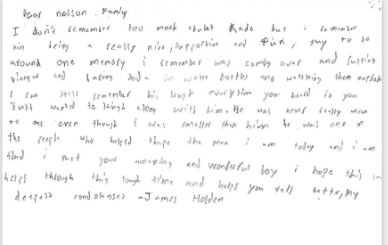 Dear nelson Family
I don't remember too much about Kade but i remember
him being a really nice, supportive and fun, guy to be
around one memory i remember was coming over and putting
vinegar and baking soda in water bottles and watching them explode
I can still remember his laugh everytime you heard it you
Just wanted to laugh along with him. He was never really mean
to me even though i was smaller than him he was one of
the people who helped shape the man i am today and i am
Glad i met your amazing and wonderful boy i hope this
helps through this tough time and helps you feel better, My
deepest condolences -James Holden